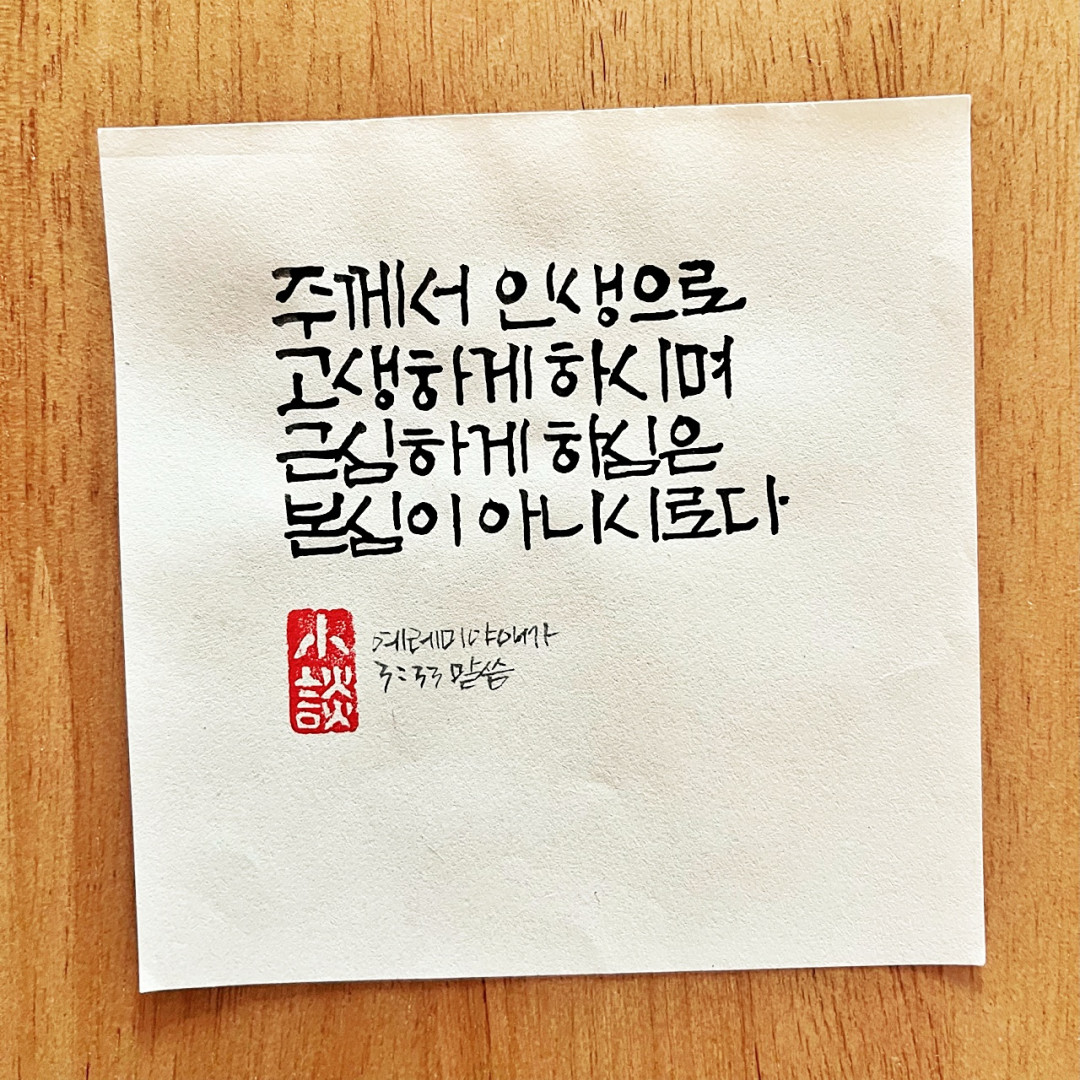 주께서 인생으로
고생하게 하시며
근심하게 하심은
본심이 아니시로다
小談
예레미야애가
3:33 말씀